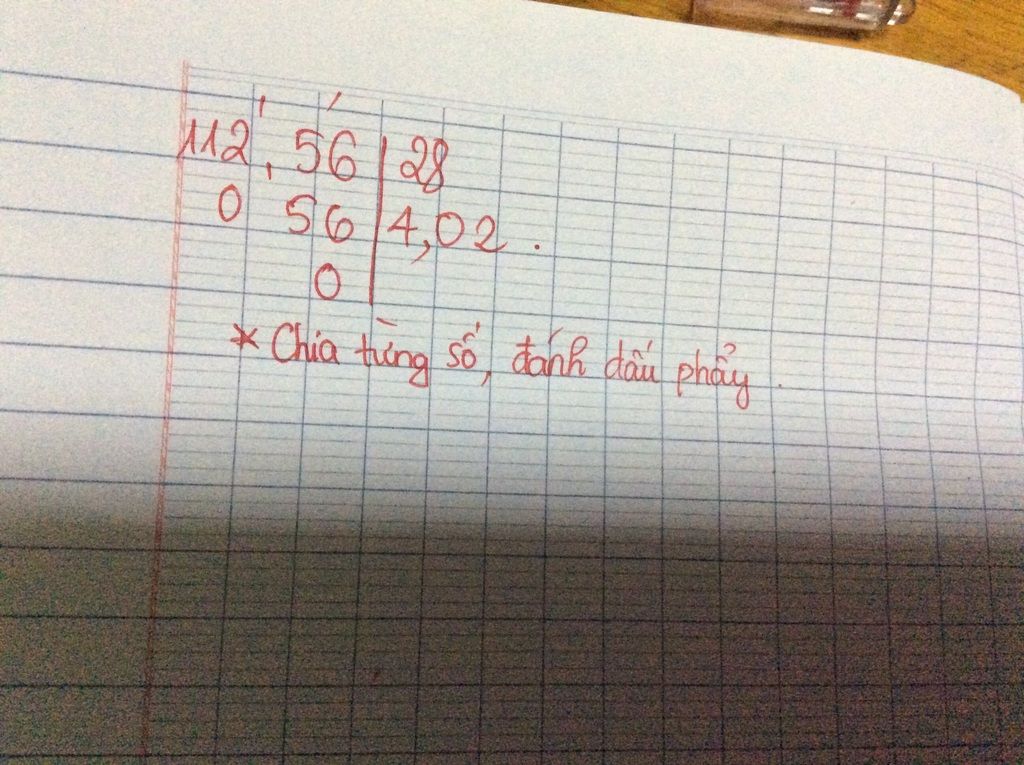 112,56 | 28
0 56 | 4,02.
0
* Chia từng số, đánh dấu phẩy.